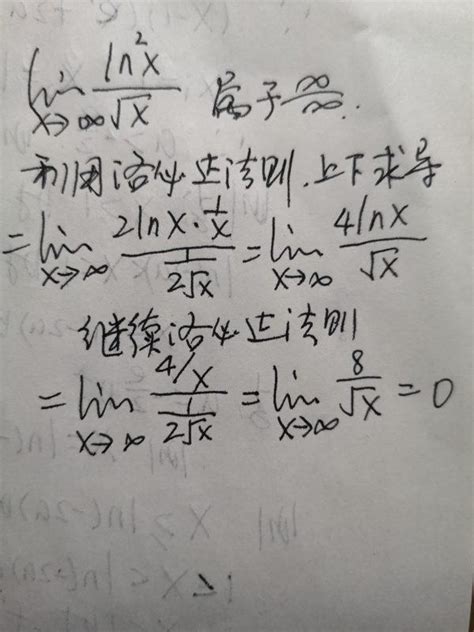 lim x→∞ ln²x/√x 属于 ∞/∞.
利用洛必达法则,上下求导
= lim x→∞ (2lnx·1/x)/(1/(2√x)) = lim x→∞ 4lnx/√x
继续洛必达法则
= lim x→∞ (4/x)/(1/(2√x)) = lim x→∞ 8/√x = 0